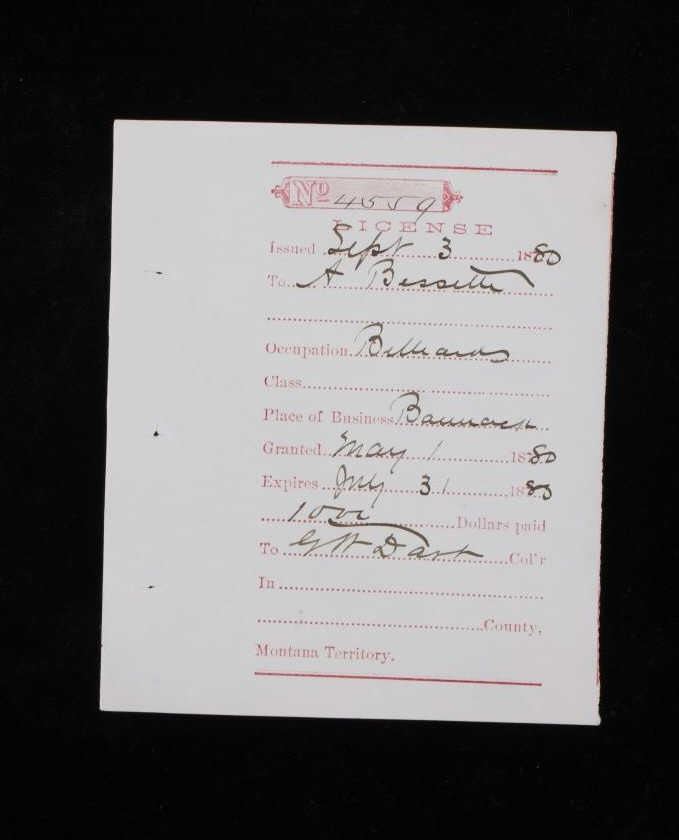 No 4559
LICENSE
Issued Sept 3 1880
To A Bessette
Occupation Billiards
Class
Place of Business Bannack
Granted May 1 1880
Expires July 31 1880
10 00 Dollars paid
To G W Dart Col'r
In
County,
Montana Territory.